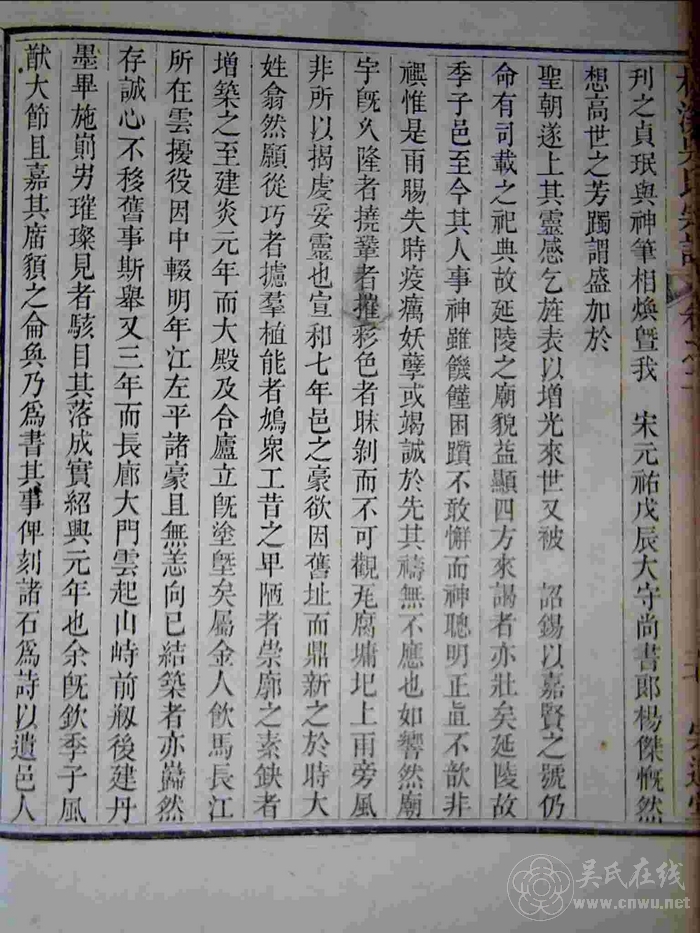 刋之貞珉與神筆相煥曁我 宋元祐戊辰大守尚書郎楊傑慨然
想高世之芳躅謂盛加於
聖朝遂上其靈感乞旌表以增光來世又被 詔錫以嘉賢之號仍
命有司載之祀典故延陵之廟貌益顯四方來謁者亦壯矣延陵故
季子邑至今其人事神雖饑饉困躓不敢懈而神聰明正眞不歆非
禩惟是雨暘失時疫癘妖孽或竭誠於先其禱無不應也如響然廟
宇旣久隆者撓鞏者摧彩色者昧剝而不可觀𤬪腐墉圮上雨旁風
非所以揭虔妥靈也宣和七年邑之豪欲因舊址而鼎新之於時大
姓翕然願從巧者攄羣植能者鳩衆工昔之𤰞陋者崇廓之素缺者
增築之至建炎元年而大殿及合廬立旣塗墍矣屬金人飲馬長江
所在雲擾役因中輟明年江左平諸豪且無恙向已結築者亦巋然
存誠心不移舊事斯舉又三年而長廊大門雲起山峙前剏後建丹
墨畢施煎男璀璨見者駭目其落成實紹興元年也余旣欽季子風
猷大節且嘉其廣頟之侖奐乃爲書其事俾刻諸石爲詩以遺邑人
吴氏在线
www.cnwu.net